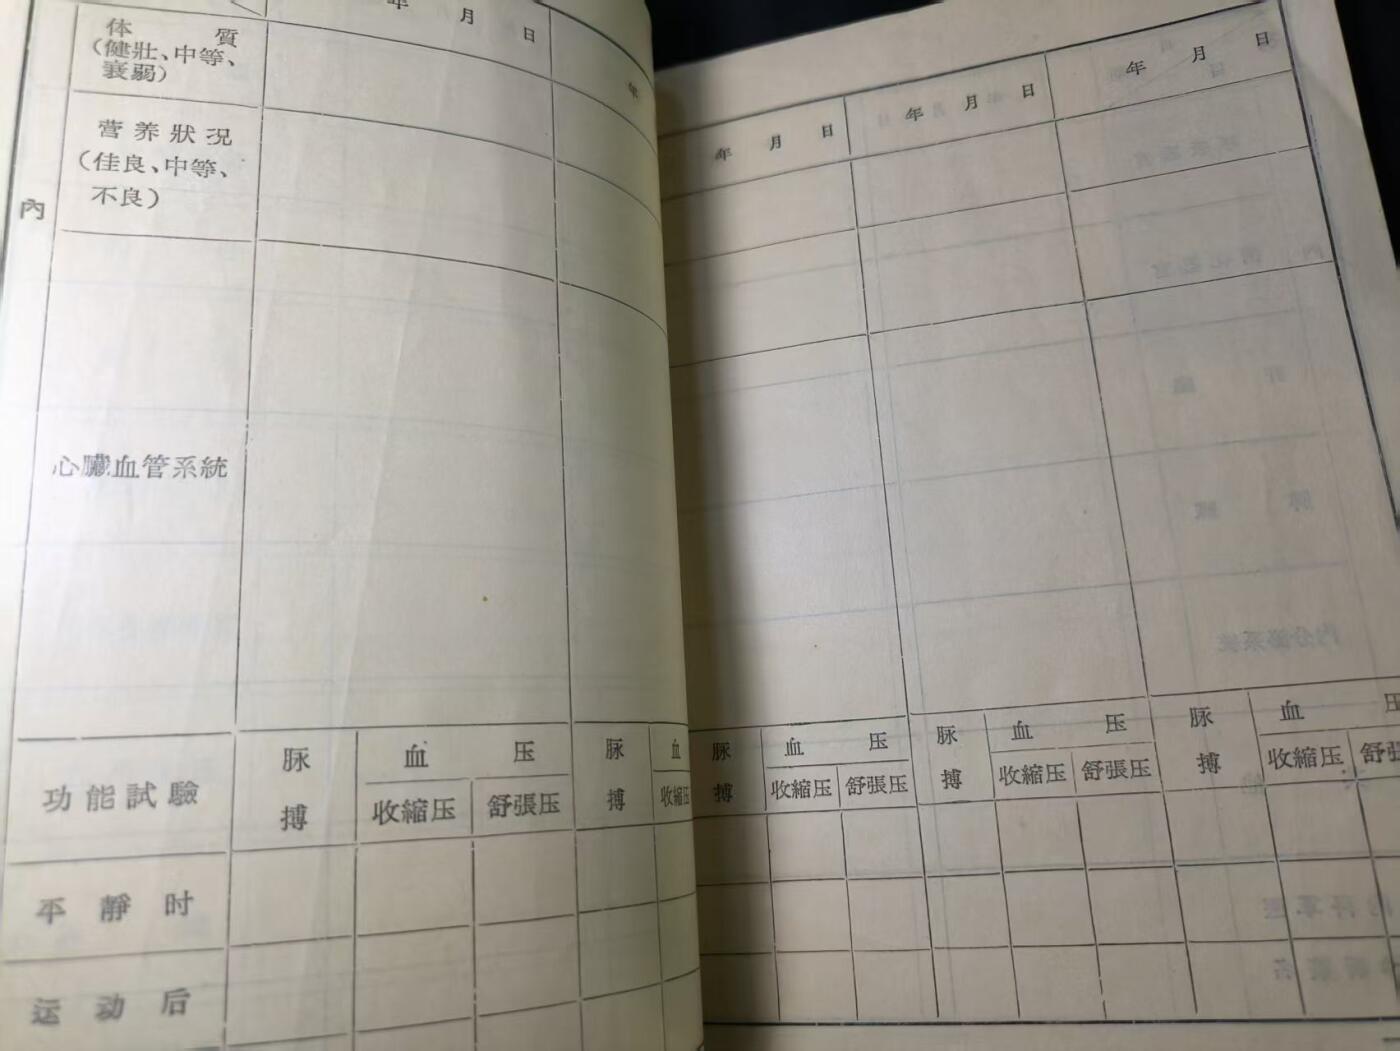 年 月 日
体 質
(健壯、中等、
衰弱)
年
营养狀况
(佳良、中等、
不良)
內
心臟血管系統
功能試驗
脈
搏
血 压
收縮压
舒張压
脈
搏
血
收縮
平靜时
运动后
年 月 日
年 月 日
年 月 日
脈
搏
血 压
收縮压
舒張压
脈
搏
血 压
收縮压
舒張压
脈
搏
血 压
收縮压
舒張